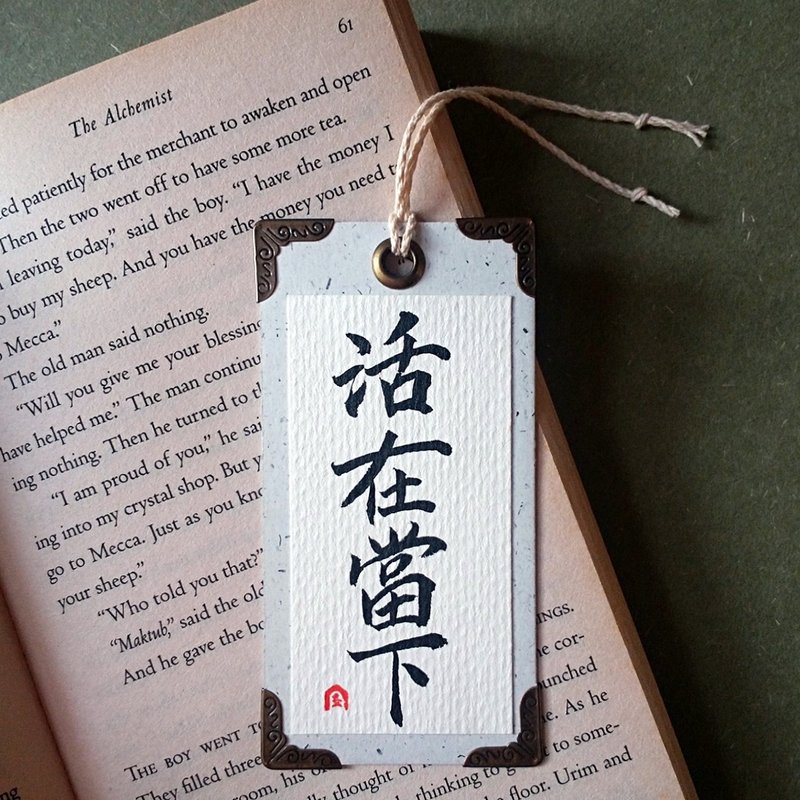 61
The Alchemist
ed patiently for the merchant to awaken and open
Then the two went off to have some more tea.
leaving today," said the boy. "I have the money I
o buy my sheep. And you have the money you need
o Mecca."
The old man said nothing.
"Will you give me your blessing
have helped me." The man continu
ing nothing. Then he turned to th
"I am proud of you," he sai
ing into my crystal shop. But y
go to Mecca. Just as you know
your sheep."
"Who told you that?"
"Maktub," said the old
And he gave the bo
THE BOY WENT TO
INGS.
They filled three
cor-
room, his
punched
ally thought of
As he
thinking to
to some-
the floor. Urim and
活在當下